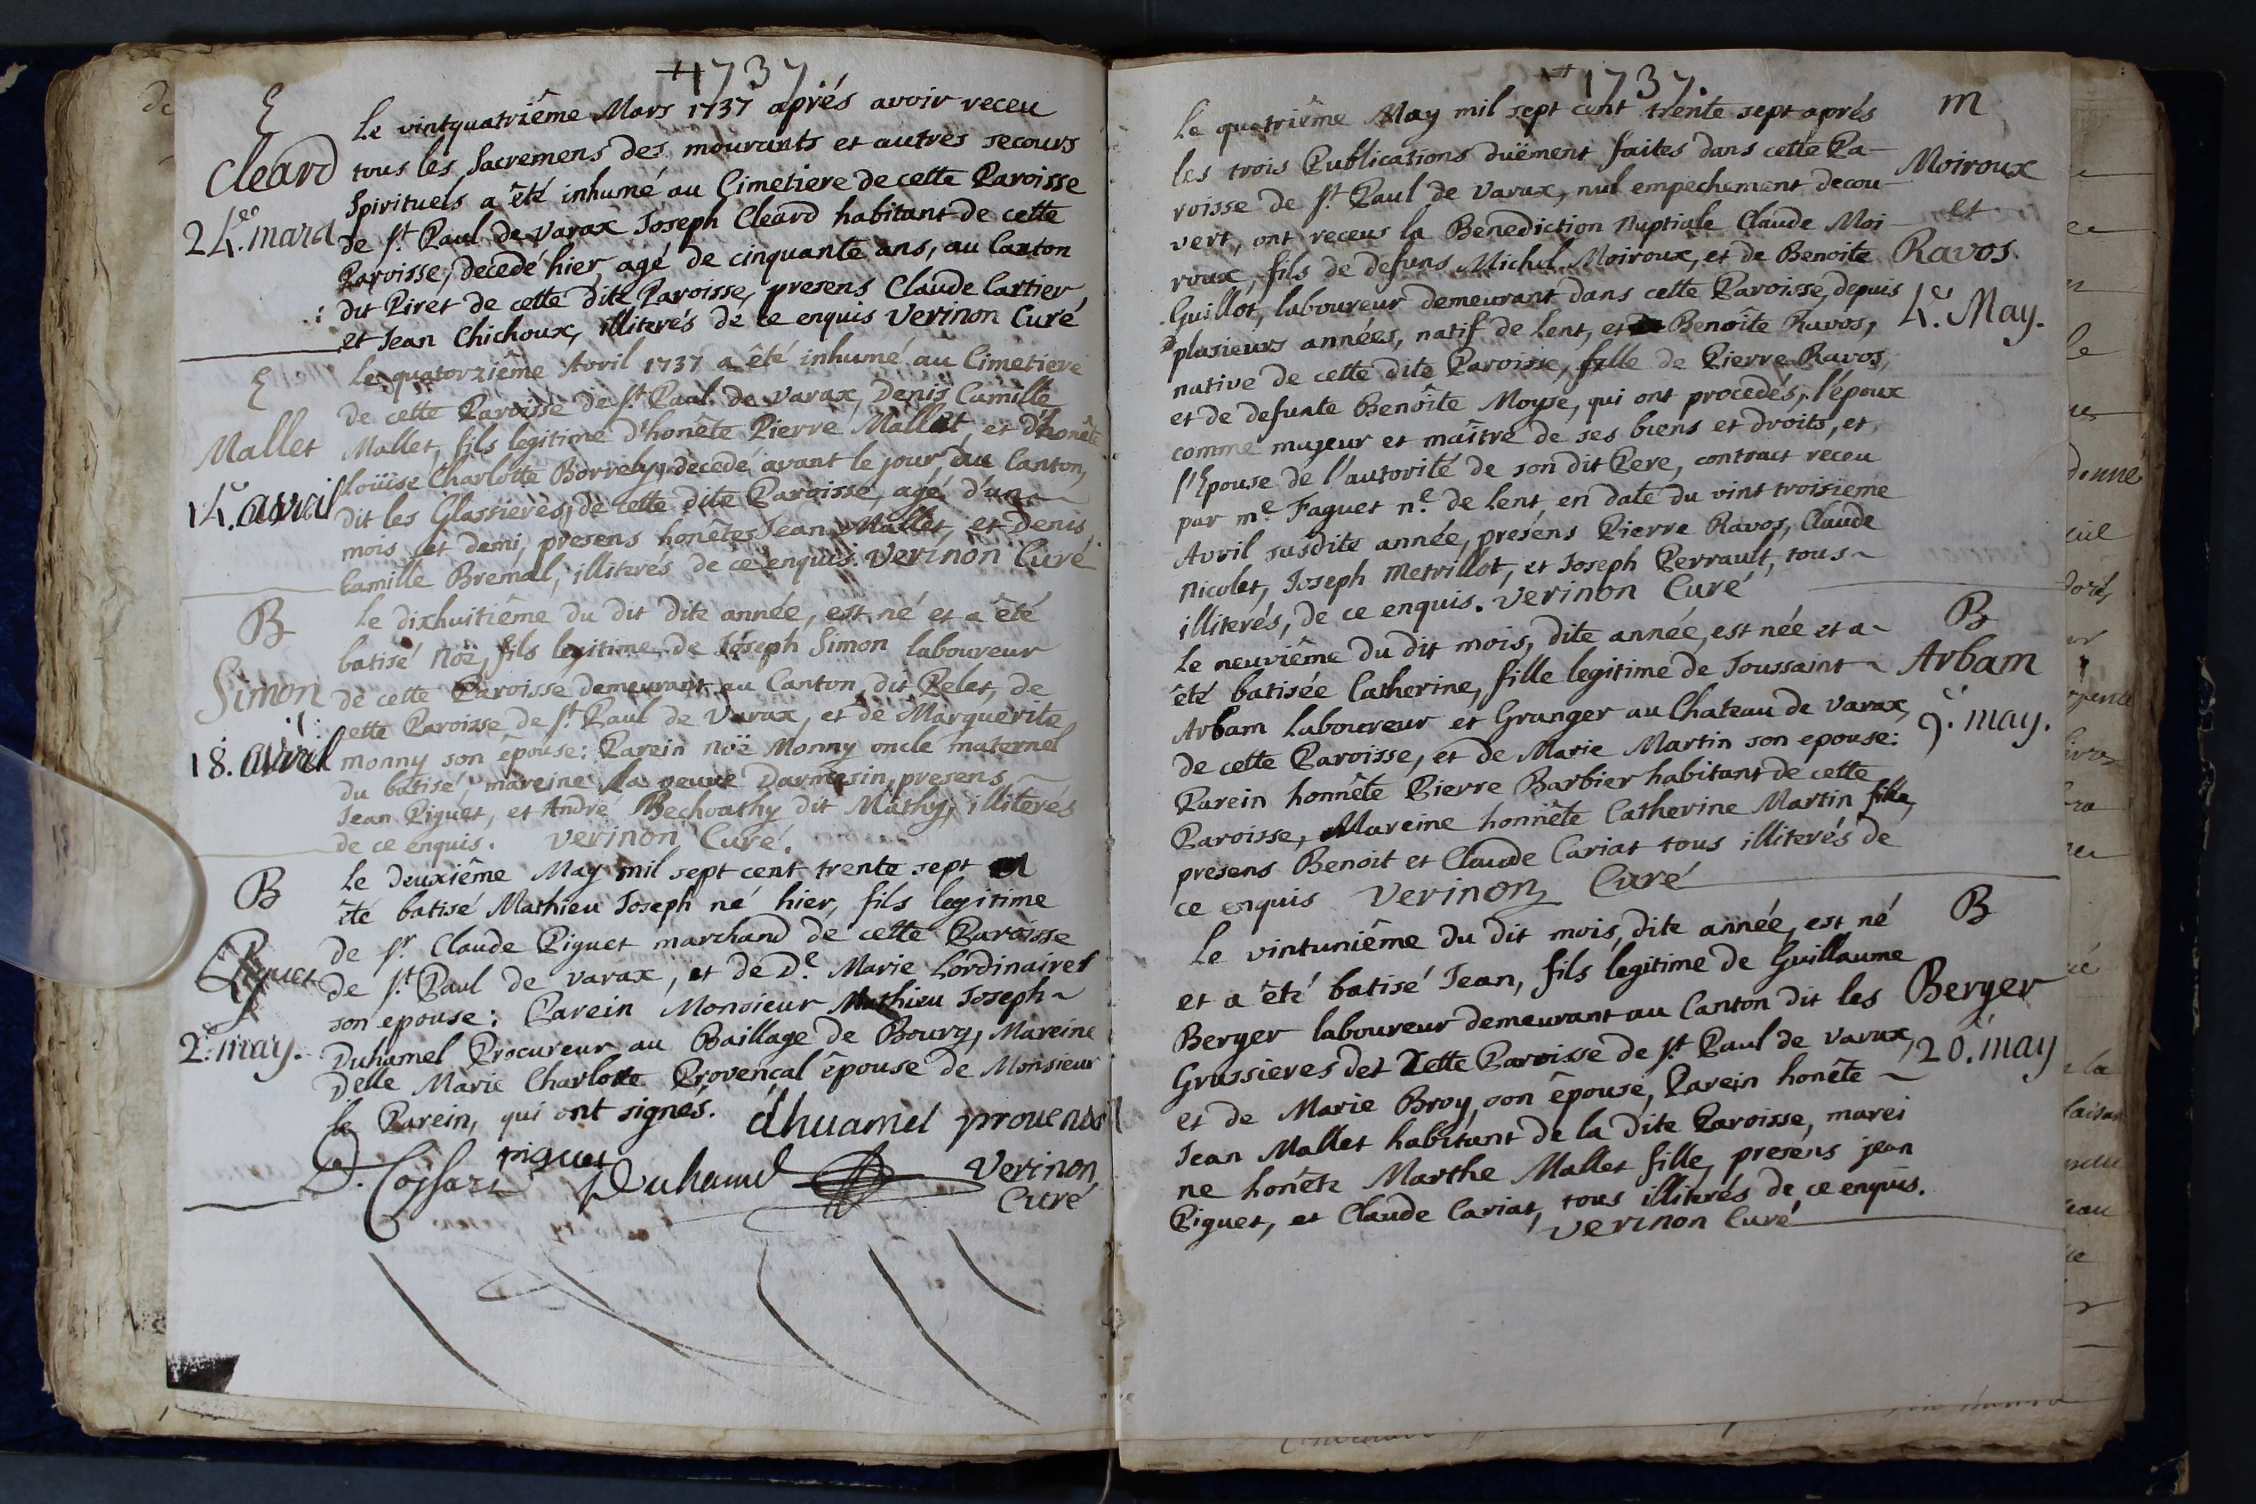 1737
E
Cleard
24.eo mars
Le vintquatriême Mars 1737 aprés avoir receu
tous les Sacremens des mourants et autres secours
Spirituels a êté inhumé au Cimetiere de cette Paroisse
de St. Paul de Varax Joseph Cleard habitant de cette
Paroisse, decedé hier, agé de cinquante ans, au Canton
dit Piret de cette dite Paroisse, presens Claude Cartier
et Jean Chichoux, illiterés de ce enquis Verinon Curé
E
Mallet
14.e avril
Le quatorziême Avril 1737 a êté inhumé au Cimetiere
de cette Paroisse de St. Paul de Varax, Denis Camille
Mallet, fils legitime d'honête Pierre Mallet, et d'honête
Loüise Charlotte Borrely, decedé avant le jour, au Canton,
dit les Glassieres, de cette dite Paroisse, agé d'un
mois et demi, presens honêtes Jean Mallet, et Denis
Camille Bremal, illiterés de ce enquis. Verinon Curé
B
Simon
18. avril
Le dixhuitiême du dit dite année, est né et a êté
batisé Noë, fils legitime de Joseph Simon laboureur
de cette Paroisse demeurant au Canton, dit Pelet, de
cette Paroisse de St. Paul de Varax, et de Marguerite
monny son épouse: Parein Noë Monny oncle maternel
du batisé, mareine la veuve Darmesin, presens
Jean Piguet, et André Bechoathy dit Mathy, illiterés
de ce enquis. Verinon Curé.
B
Piguet
2.e may.
Le deuxiême May mil sept cent trente sept a
êté batisé Mathieu Joseph né hier, fils legitime
de Sr. Claude Piguet marchand de cette Paroisse
de St. Paul de Varax, et de De. Marie Lordinaires
son epouse: Parein Monsieur Mathieu Joseph
Duhamel Procureur au Baillage de Bourg, Mareine
Delle Marie Charlote Provençal êpouse de Monsieur
le Parein, qui ont signés. dhuamel prouensal
D. Cossart piguet Duhamel Verinon
Curé
1737.
m
Moiroux
et
Ravos.
4.e May.
Le quatriême May mil sept cent trente sept aprés
les trois Publications duëment faites dans cette Pa-
roisse de St. Paul de Varax, nul empechement decou-
vert, ont receus la Benediction Nuptiale Claude Moi
roux, fils de defuns Michel Moiroux, et de Benoite
Guillot, laboureur demeurant dans cette Paroisse, depuis
plusieurs années, natif de Lent, et Benoite Ravos,
native de cette dite Paroisse, fille de Pierre Ravos,
et de defunte Benoîte Moyse, qui ont procedés, l'époux
comme majeur et maître de ses biens et droits, et
l'Epouse de l'autorité de son dit Pere, contract receu
par me. Faguet ne. de Lent, en date du vint troisieme
Avril susdite année, presens Pierre Ravos, Claude
Nicolet, Joseph Metrillot, et Joseph Perrault, tous
illiterés, de ce enquis. Verinon Curé
B
Arbam
9.e may.
Le neuviême du dit mois, dite année, est née et a
êté batisée Catherine, fille legitime de Toussaint
Arbam laboureur et Granger au Chateau de Varax,
de cette Paroisse, et de Marie Martin son epouse:
Parein honnête Pierre Barbier habitant de cette
Paroisse, Mareine honnête Catherine Martin fille,
presens Benoit et Claude Cariat tous illiterés de
ce enquis Verinon Curé
B
Berger
20. may
Le vintuniême du dit mois, dite année, est né
et a êté batisé Jean, fils legitime de Guillaume
Berger laboureur demeurant au Canton dit les
Grassieres de cette Paroisse de St. Paul de Varax,
et de Marie Broy, son êpouse, Parein honête
Jean Mallet habitant de la dite Paroisse, marei
ne honête Marthe Mallet fille, presens jean
Piguet, et Claude Cariat, tous illiterés de ce enquis.
Verinon Curé